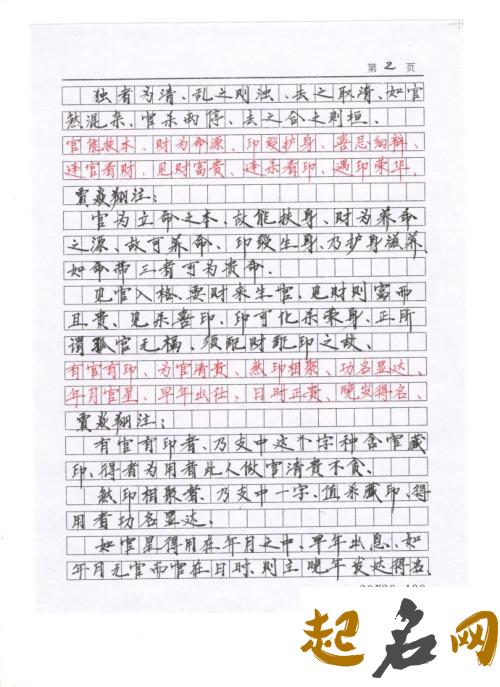 第 2 页
独者为清、乱之则浊、去之取清、如官
煞混杂、官杀两停、去之合之则
官能扶本、财为命源、印绶护身、喜忌细辩
逢官看财、见财富贵、逢杀看印、遇印荣华、
贾炎翔注:
官为立命之本、故能扶身、财为养命
之源、故可养命、印绶生身、乃护身滋养、
如命带三者可为贵命.
见官入格、要财来生官、见财则富而
且贵、见杀喜印、印可化杀荣身、正所
谓孤官无辅、须配财配印之故、
有官有印、为官清贵、煞印相聚、功名显达、
年月官星、早年出仕、日时正贵、晚岁得名、
贾炎翔注:
有官有印者、乃支中这个字种含官藏
印、得者为用者此人做官清贵不贪、
煞印相聚者、乃支中一字、值杀藏印、得
用者功名显达、
如官星得用在年月之中、早年出息、如
年月无官而官在日时、则主晚年发达得名.
起名网